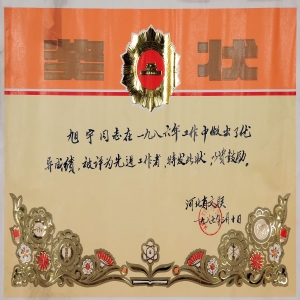 奖状
旭宇同志在一九八六年工作中做出了优
异成绩，被评为先进工作者，特发此状，以资鼓励。
河北省文联
一九八七年二月十日